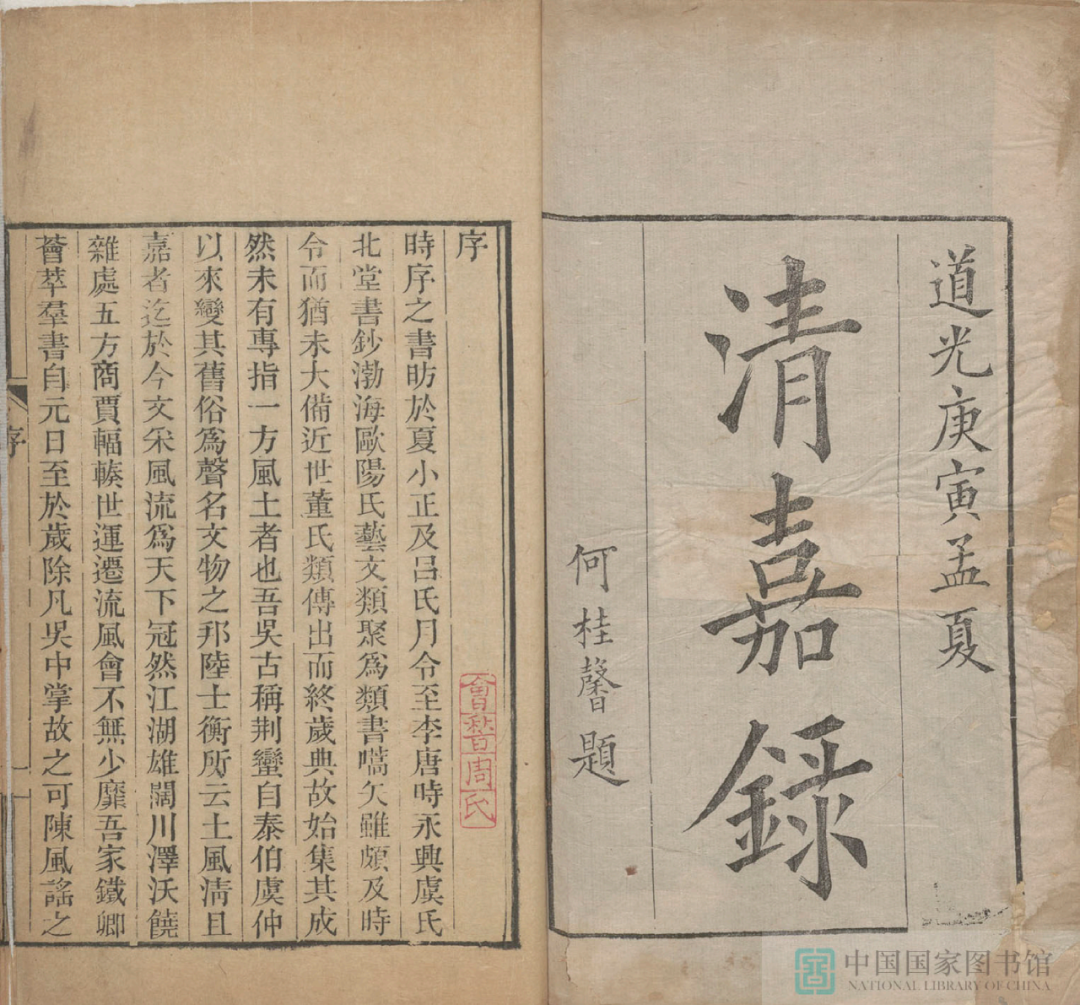 道光庚寅孟夏
清嘉録
何桂馨題
序
時序之書昉於夏小正及呂氏月令至李唐時永興虞氏
北堂書鈔渤海歐陽氏藝文類聚爲類書嚆矢雖頗及時
令而猶未大備近世董氏類傳出而終歲典故始集其成
然未有專指一方風土者也吾吳古稱荆蠻自泰伯虞仲
以來變其舊俗爲聲名文物之邦陸士衡所云土風淸且
嘉者迄於今文采風流爲天下冠然江湖雄闊川澤沃饒
雜處五方商賈輻輳世運遷流風會不無少靡吾家鐵卿
薈萃羣書自元日至於歲除凡吳中掌故之可陳風謠之
序
會稽周氏
中国国家图书馆
NATIONAL LIBRARY OF CHINA